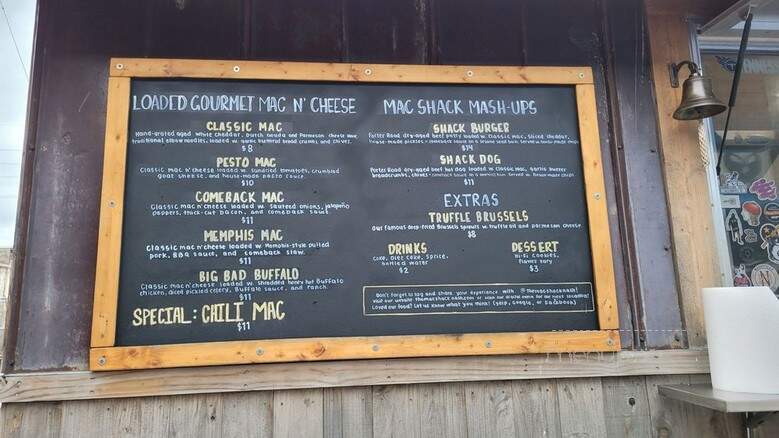 LOADED GOURMET MAC N' CHEESE
CLASSIC MAC
Hand-grated aged white cheddar, Dutch Gouda and Parmesan cheese over
traditional elbow noodles, loaded w/ garlic buttered bread crumbs and chives.
$8
PESTO MAC
Classic mac n'cheese loaded w/ sundried tomatoes, crumbled
goat cheese, and house-made pesto sauce.
$10
COMEBACK MAC
Classic mac n'cheese loaded w/ sautéed onions, jalapeño
peppers, thick-cut bacon, and comeback sauce.
$11
MEMPHIS MAC
Classic mac n'cheese loaded w/ Memphis-style pulled
pork, BBQ sauce, and comeback slaw.
$11
BIG BAD BUFFALO
Classic mac n'cheese loaded w/ shredded honey hot Buffalo
chicken, diced pickled celery, Buffalo sauce, and ranch.
$11
SPECIAL: CHILI MAC
$11
MAC SHACK MASH-UPS
SHACK BURGER
Porter Road dry-aged beef patty loaded w/ Classic mac, sliced cheddar,
house-made pickles + comeback sauce on a sesame seed bun. Served w/ house-made chips
$14
SHACK DOG
Porter Road dry-aged beef hot dog loaded w/ Classic mac, garlic butter
breadcrumbs, chives + comeback sauce in a bun. Served w/ house-made chips
$11
EXTRAS
TRUFFLE BRUSSELS
Our famous deep-fried Brussels sprouts w/ truffle oil and parmesan cheese
$8
DRINKS
Coke, Diet Coke, Sprite,
bottled water
$2
DESSERT
Hi-Fi Cookies,
flavors vary
$3
Don't forget to tag and share your experience with @themacshacknash!
Visit our website themacshacknash.com or scan our QR code for our next location!
Loved our food? Let us know what you think! (Yelp, Google, or Facebook)